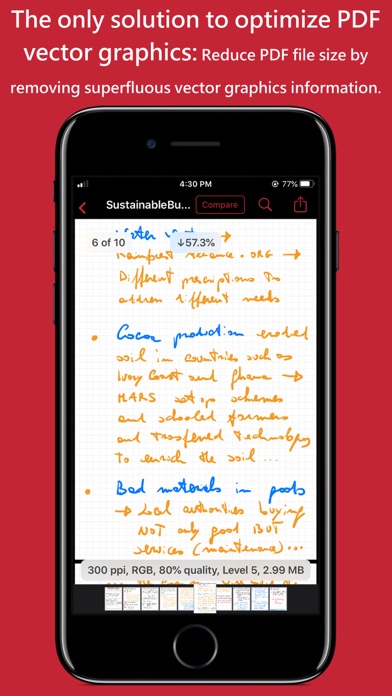 The only solution to optimize PDF
vector graphics: Reduce PDF file size by
removing superfluous vector graphics information.
4:30 PM
77%
SustainableBu...
Compare
6 of 10
↓57.3%
→
Rainforest Alliance.ORG →
Different prescriptions to
address different needs
• Cocoa production eroded
soil in countries such as
Ivory Coast and Ghana →
MARS set up schemes
and schooled farmers
and trasfered technology
to enrich the soil ...
• Bad materials in pools
→ local authorities buying
NOT only good BUT
services (maintenance) ...
300 ppi, RGB, 80% quality, Level 5, 2.99 MB